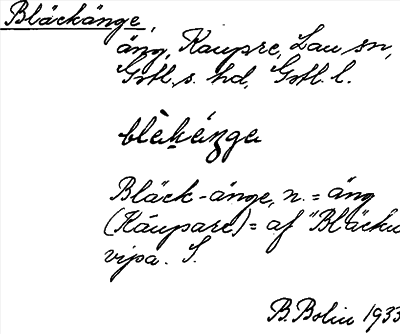 Bläckänge,
äng, Kaupre, Lau sn,
Gotl. s. hd, Gotl. l.
blèkǽnge
Bläck-änge, n. = äng
(Káupare) = af "Bläcku
vipa. S.
B. Bolin 1933